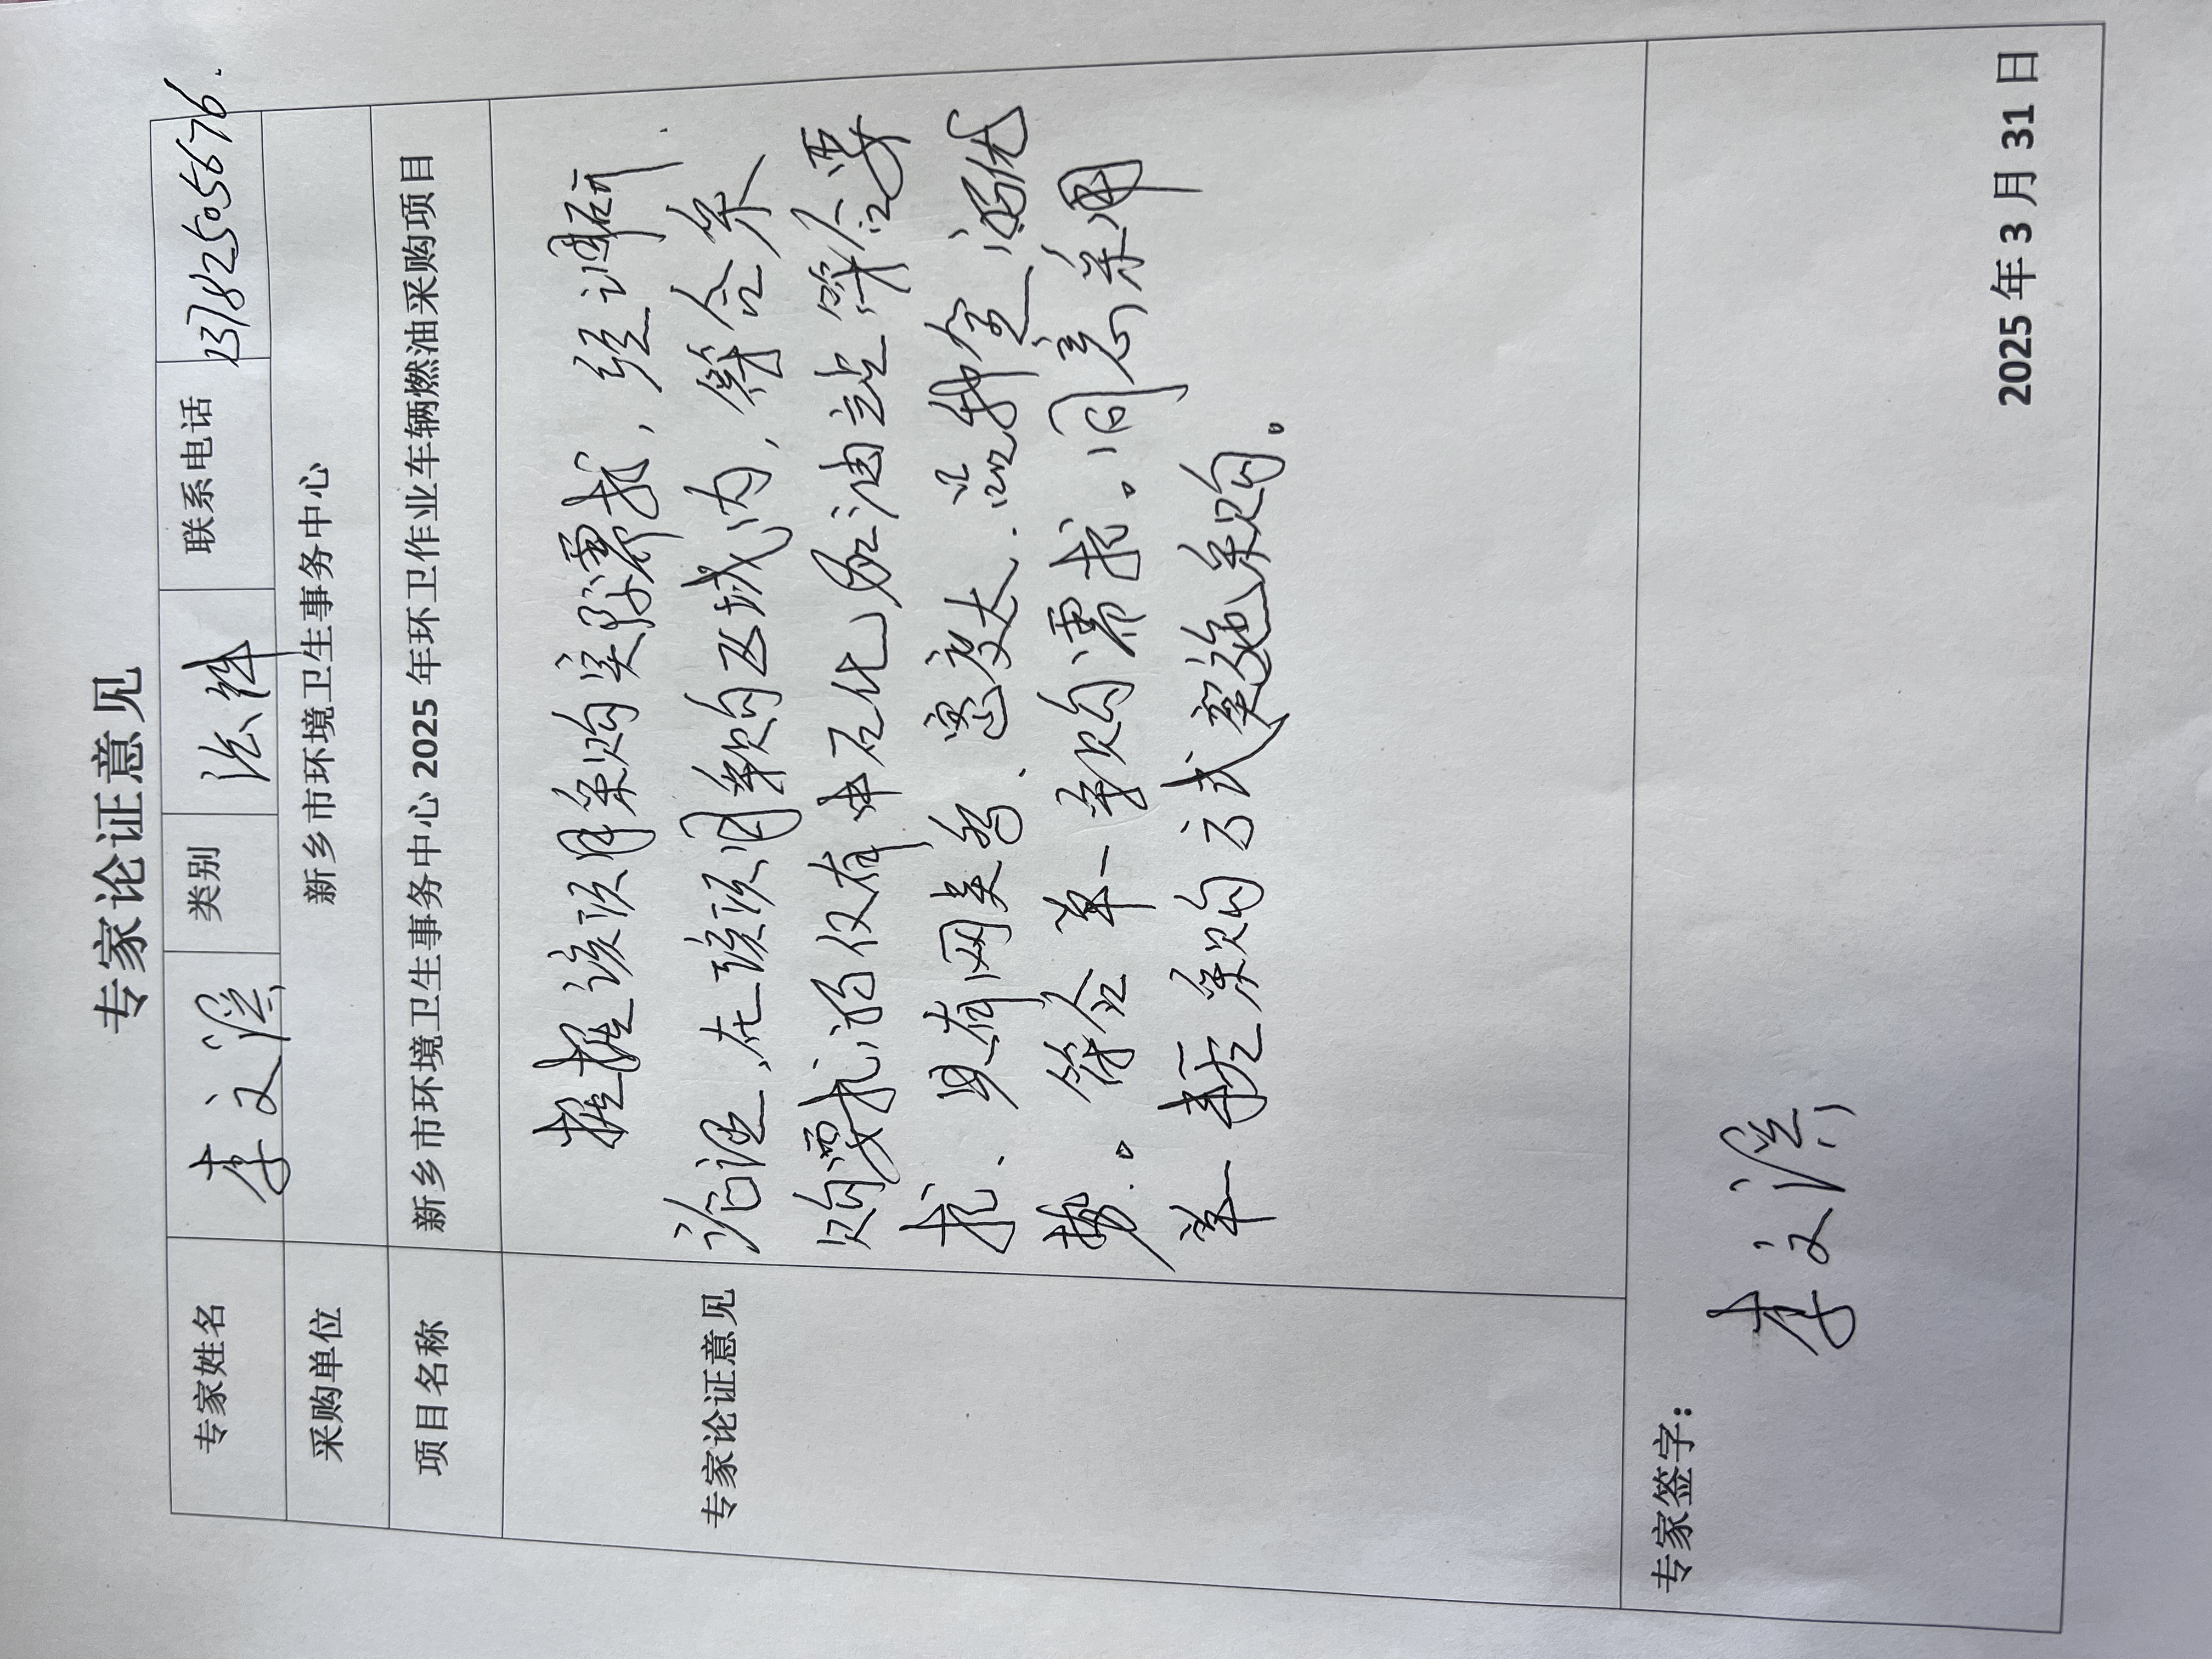 专家论证意见
专家姓名 李文溪 类别 法律 联系电话 13782505676.
采购单位 新乡市环境卫生事务中心
项目名称 新乡市环境卫生事务中心 2025 年环卫作业车辆燃油采购项目
专家论证意见
根据该项目采购实际需求，经调研.
论证、在该项目采购区域内，符合采
购要求的仅有中石化加油站符合要
求、具有网点多、密度大、品种全的优
势。符合单一采购需求。同意采用
单一来源采购方式实施采购。
专家签字：
李文溪
2025 年 3 月 31 日